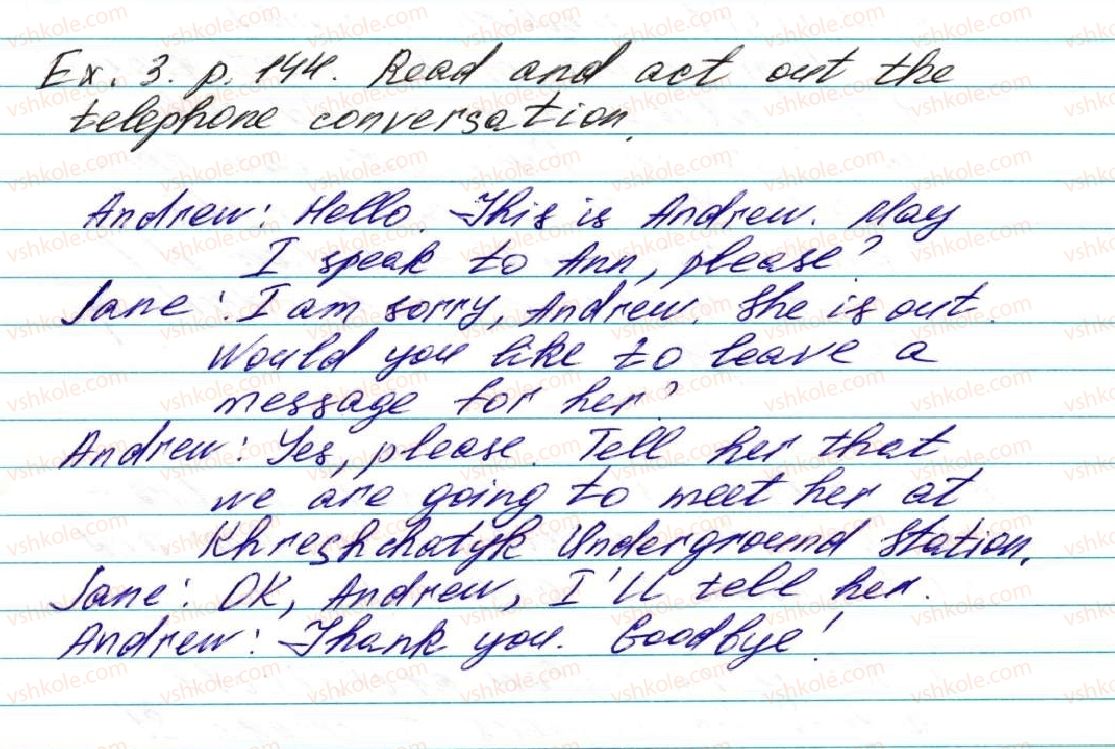 Ex. 3. p. 144. Read and act out the
telephone conversation.
Andrew: Hello. This is Andrew. May
I speak to Ann, please?
Jane: I am sorry, Andrew. She is out.
Would you like to leave a
message for her?
Andrew: Yes, please. Tell her that
we are going to meet her at
Khreshchatyk Underground Station.
Jane: OK, Andrew, I'll tell her.
Andrew: Thank you. Goodbye!